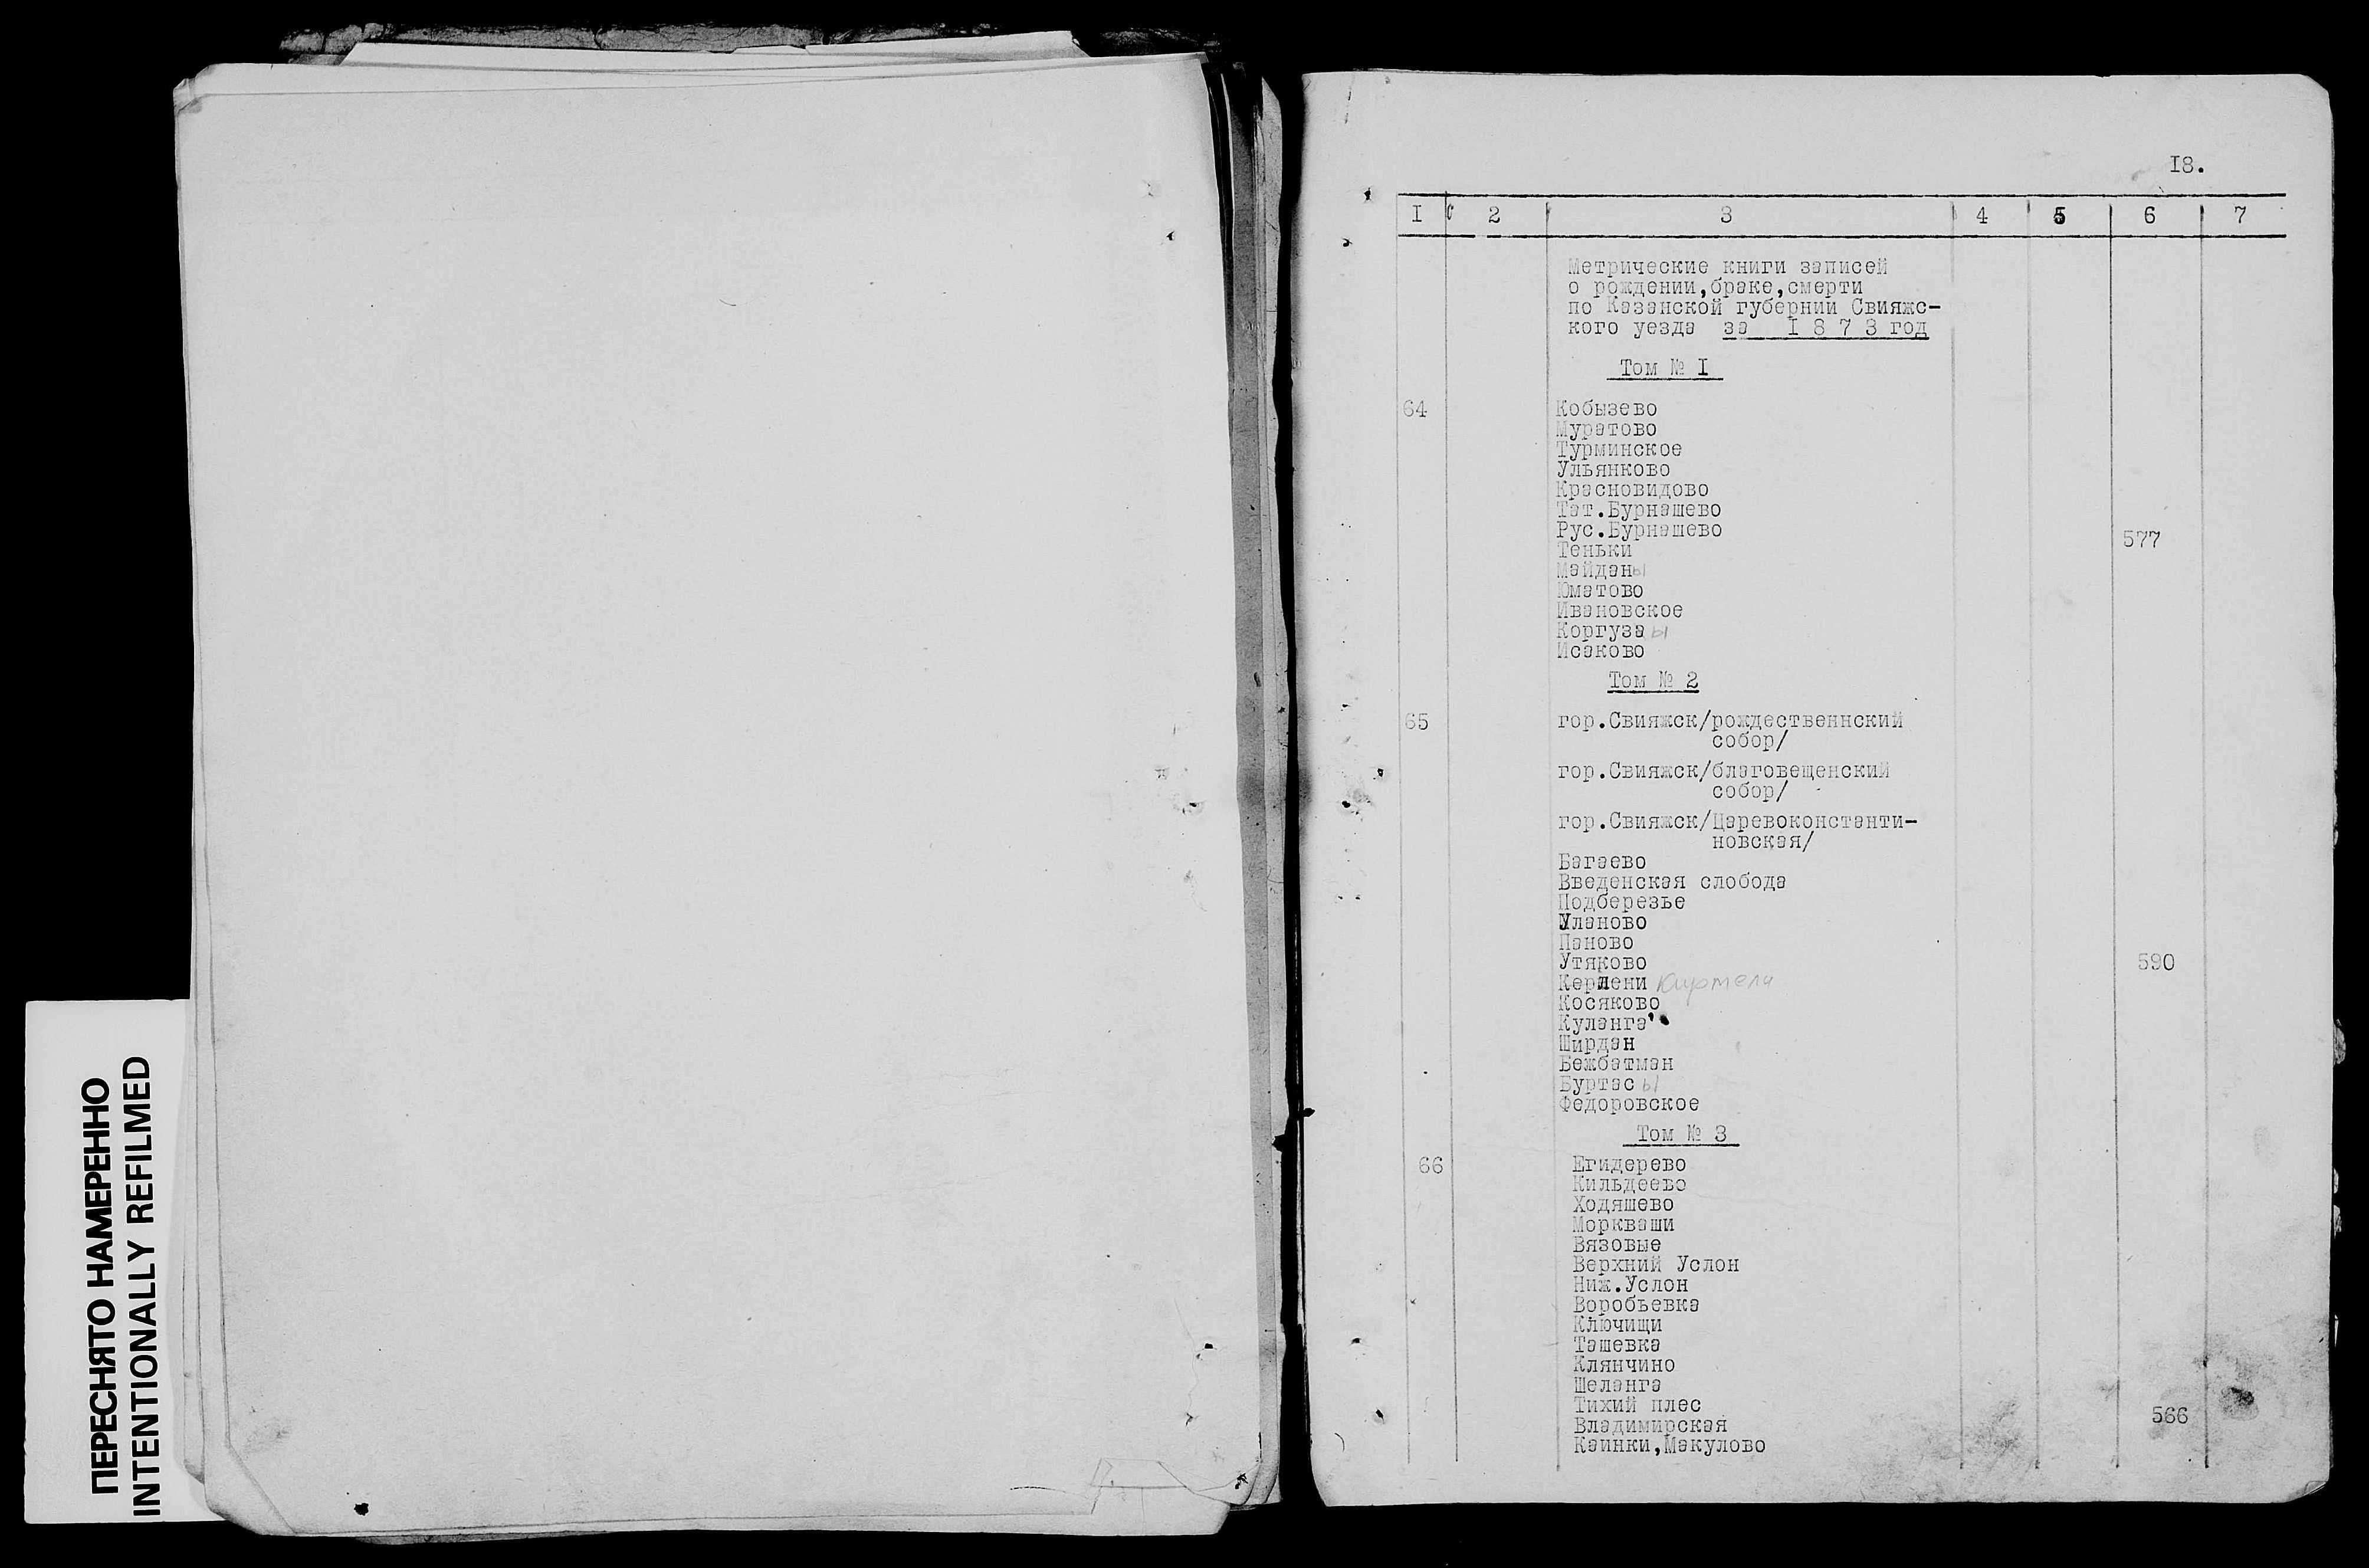 ПЕРЕСНЯТО НАМЕРЕННО
INTENTIONALLY REFILMED
I8.
I 2 3 4 5 6 7
Метрические книги записей
о рождении,браке,смерти
по Казанской губернии Свияжс-
кого уезда за I 8 7 3 год
Том № I
64 Кобызево
Муратово
Турминское
Ульянково
Красновидово
Тат.Бурнашево
Рус.Бурнашево
577
Теньки
Майданы
Юматово
Ивановское
Коргуза ы
Исаково
Том № 2
65 гор.Свияжск/рождествениский
собор/
гор.Свияжск/благовещенский
собор/
гор.Свияжск/Царевоконстанти-
новская/
Багаево
Введенская слобода
Подберезье
Уланово
Паново
Утяково 590
Керлени Киртели
Косяково
Куланга
Ширдан
Бежбатман
Буртас ы
Федоровское
Том № 3
66 Егидерево
Кильдеево
Ходяшево
Моркваши
Вязовые
Верхний Услон
Ниж.Услон
Воробьевка
Ключищи
Ташевка
Клянчино
Шеланга
Тихий плес
566
Владимирская
Каинки,Макулово